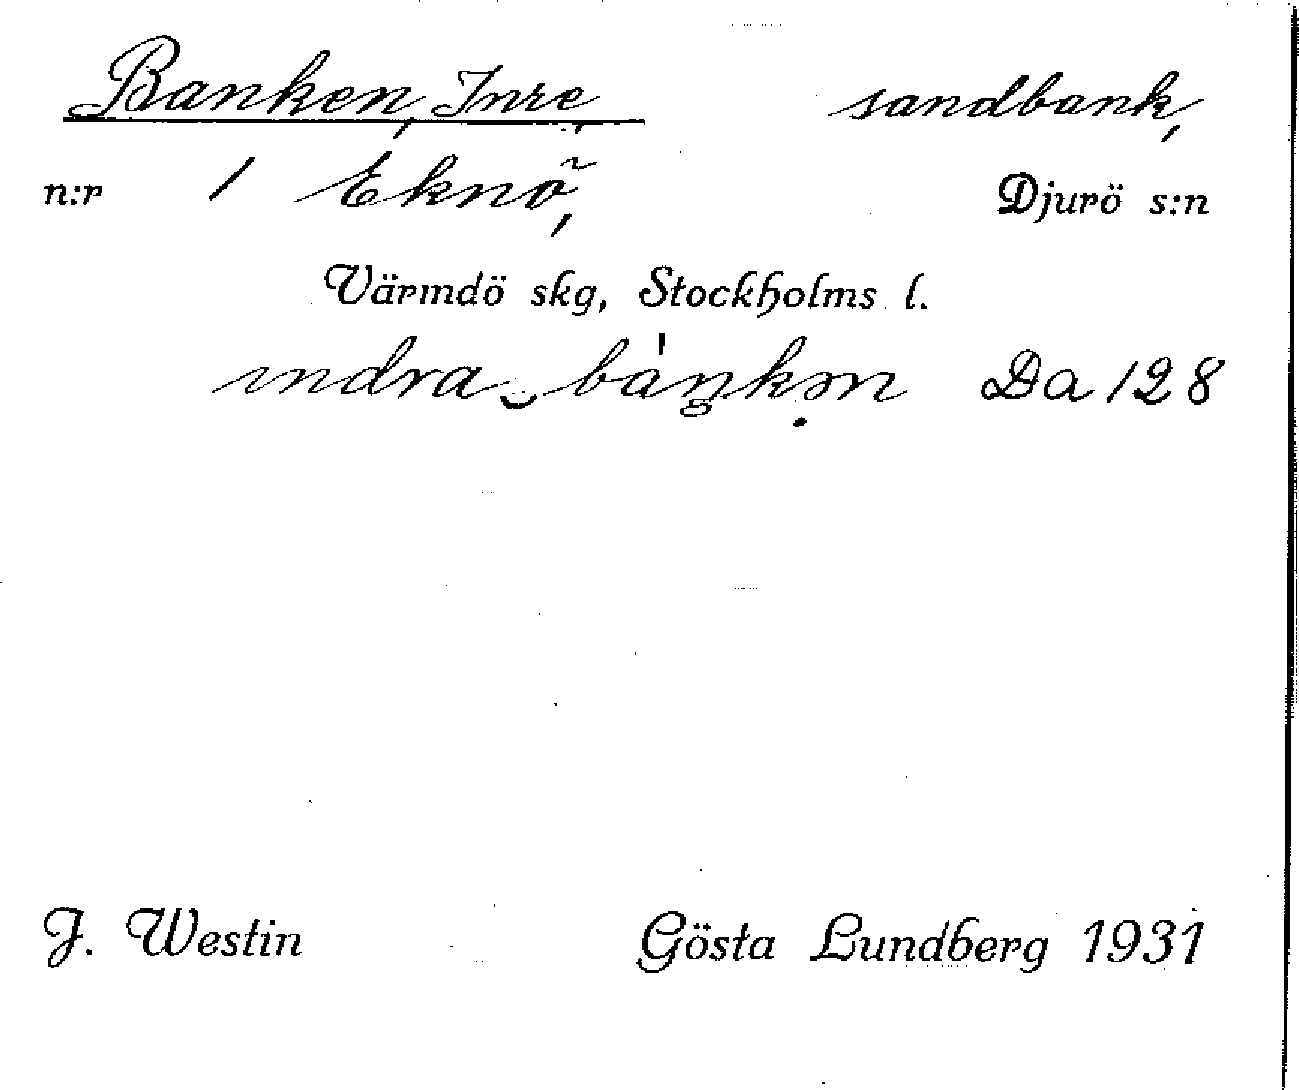 Banken, Inre, sandbank,
n:r 1 Eknö, Djurö s:n
Värmdö skg, Stockholms l.
ındra‿bàŋkə̣n Da 128
J. Westin Gösta Lundberg 1931